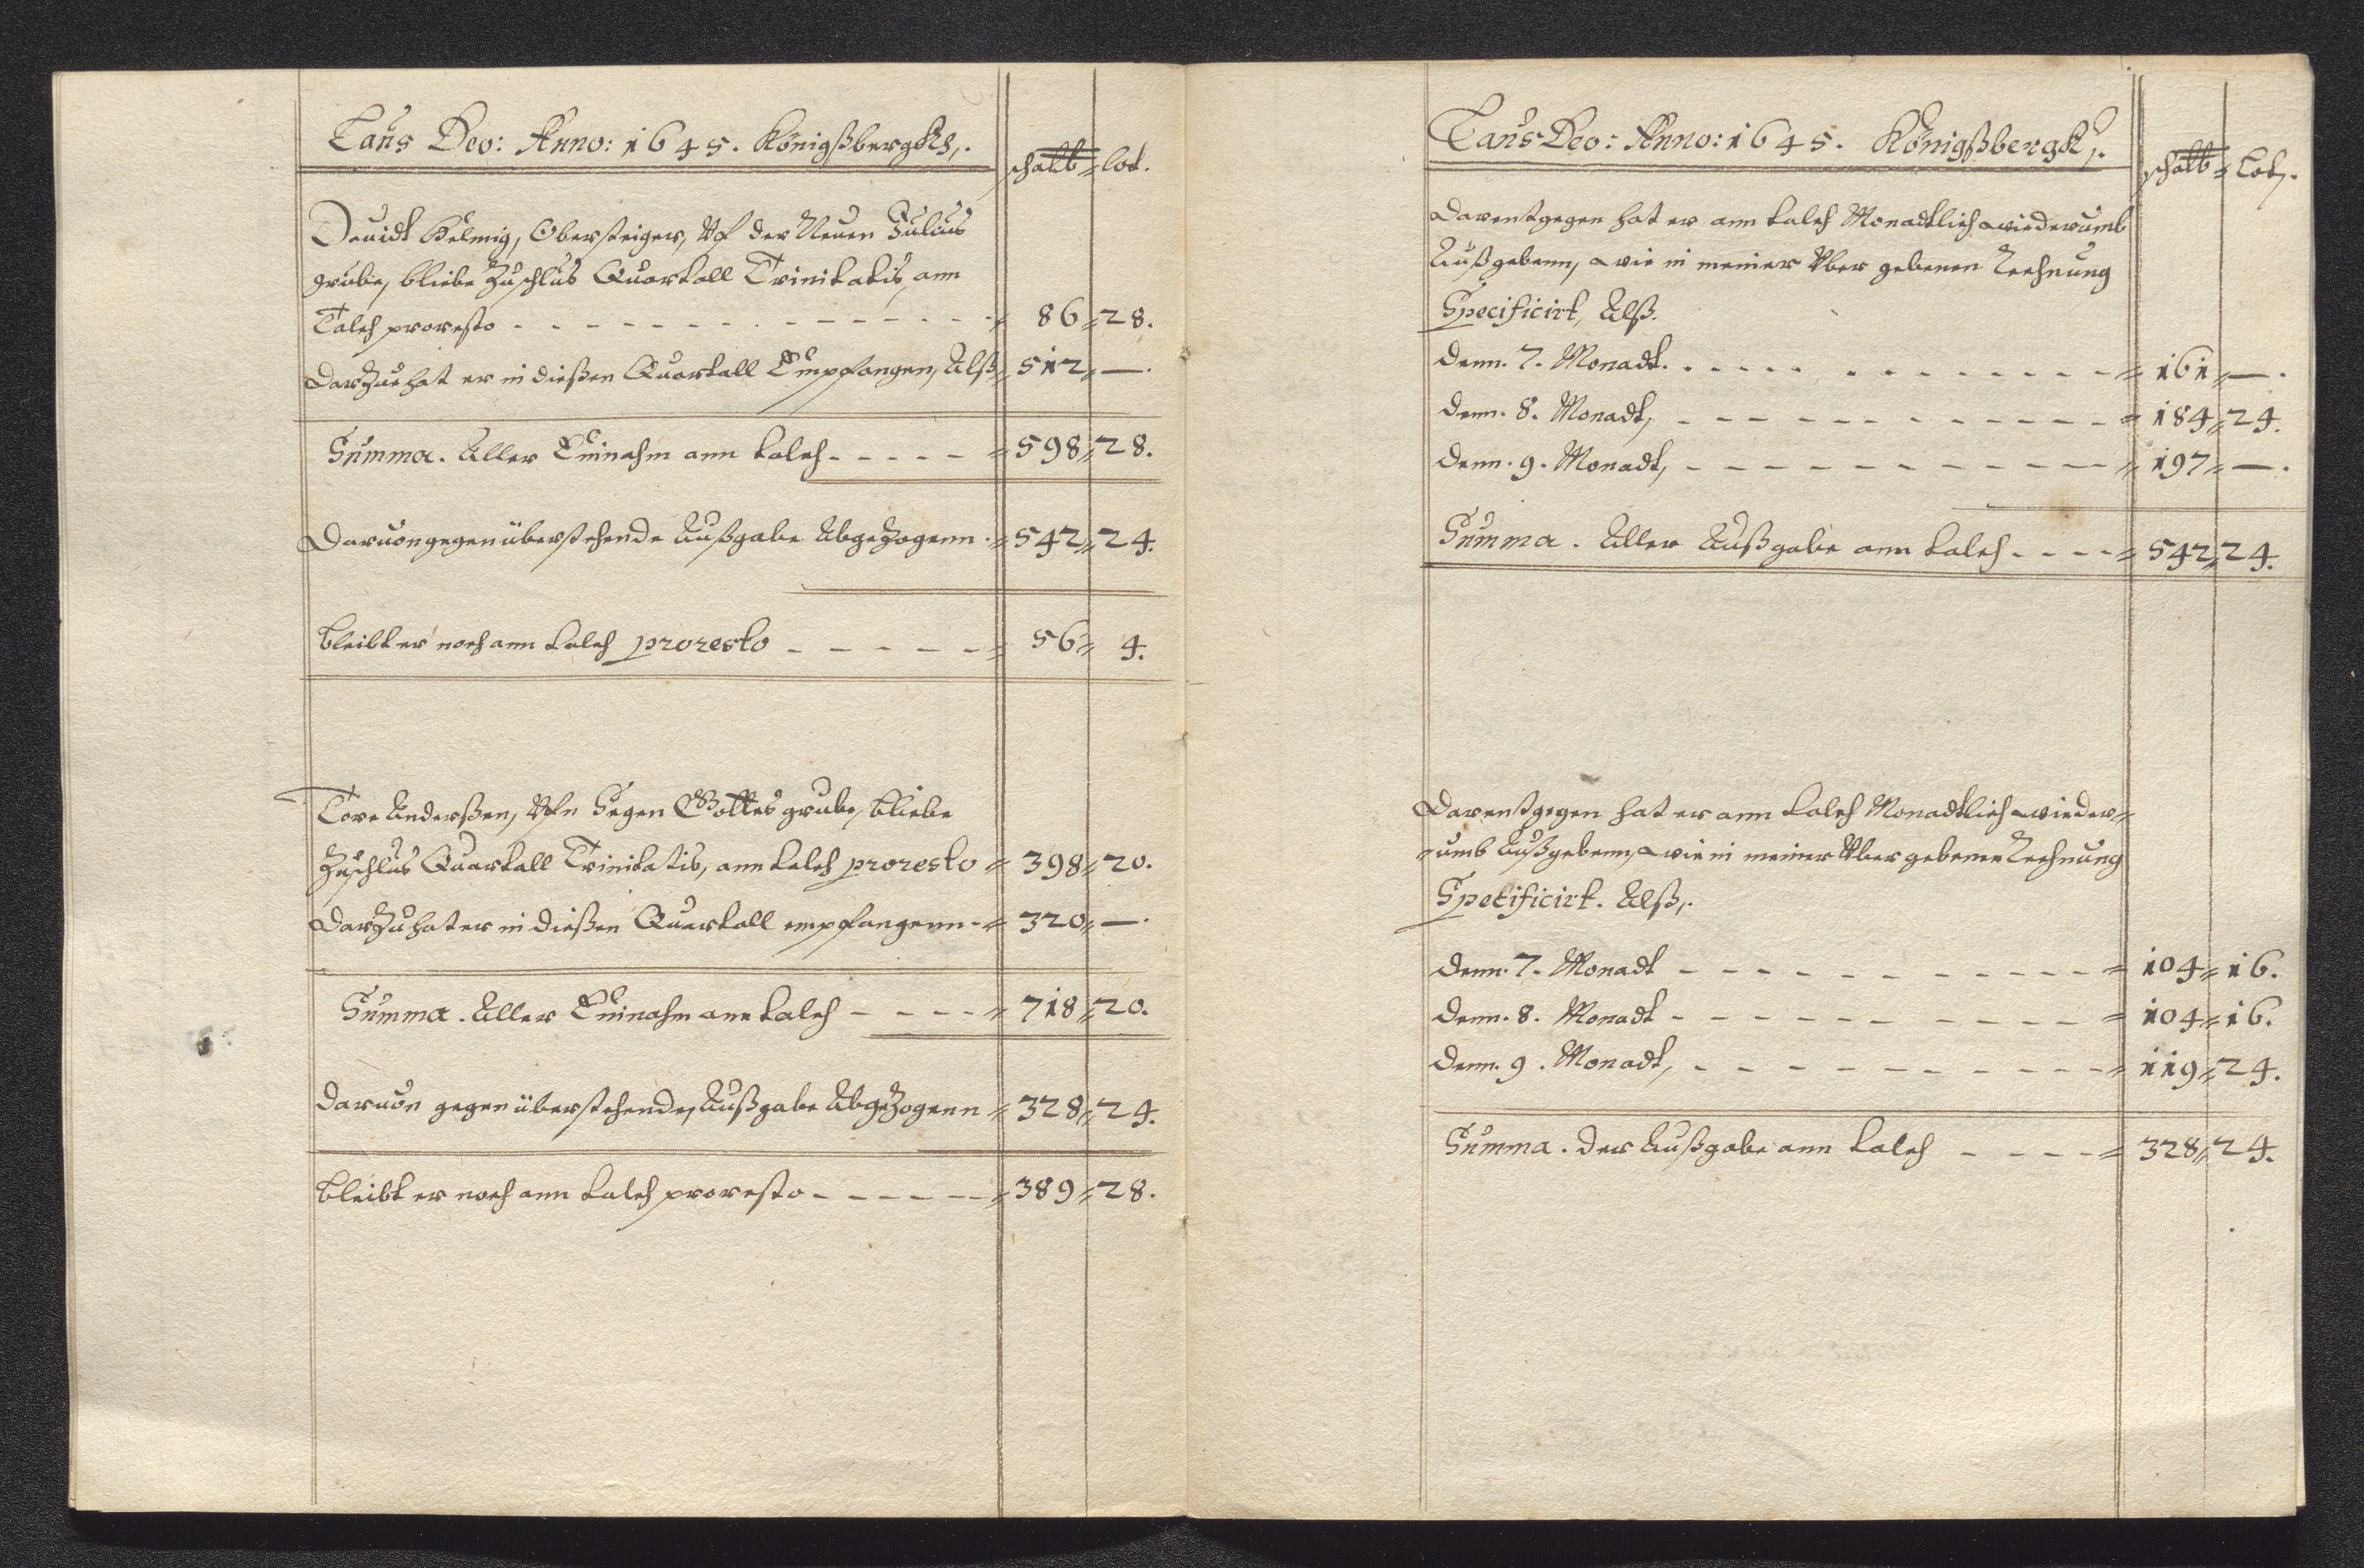 Laus Deo: Anno: 1645. Königßbergkh,.
schalt = lot.
Dauidt Helmig, Obersteiger, Vf der Neuen Julius
grube, bliebe Zuschlus Quartall Trinitatis, ann
Talch proresto - - - - - - - - - - - - - = 86 = 28.
Dar Zue hat er in dießen Quartall Empfangen, Alß = 512 = —.
Summa. Aller Einahm ann talch - - - - - = 598 = 28.
Daruon gegenüberstehende Außgabe AbgeZogenn. = 542 = 24.
bleibt er noch ann talch proresto - - - - - = 56 = 4.
Tore Anderßen, Vfn Segen Gottes grube, bliebe
Zuschlus Quartall Trinitatis, ann talch proresto = 398 = 20.
DarZu hat er in dießen Quartall empfangenn - = 320 = —.
Summa. Aller Einahm ann talch - - - - = 718 = 20.
Daruon gegenüberstehende, Außgabe AbgeZogenn = 328 = 24.
bleibt er noch ann talch proresto - - - - - = 389 = 28.
Laus Deo: Anno: 1645. Königßbergk,.
schalt = Lot,.
Darentgegen hat er ann talch Monadtlich wiederumb
Außgebenn, wie in meiner Vber gebenen Rechnung
Specificirt, Alß.
Denn. 7. Monadt. - - - - - - - - - - - = 161 = —.
Denn. 8. Monadt, - - - - - - - - - - - = 184 = 24.
Denn. 9. Monadt, - - - - - - - - - - - = 197 = —.
Summa. Aller Außgabe ann talch - - - - = 542 = 24.
Darentgegen hat er ann talch Monadtlich wieder=
=umb Außgebenn, wie in meiner Vber gebenen Rechnung
Specificirt. Alß,.
Denn. 7. Monadt - - - - - - - - - - - = 104 = 16.
Denn. 8. Monadt - - - - - - - - - - - = 104 = 16.
Denn. 9. Monadt, - - - - - - - - - - - = 119 = 24.
Summa. der Außgabe ann talch - - - - = 328 = 24.